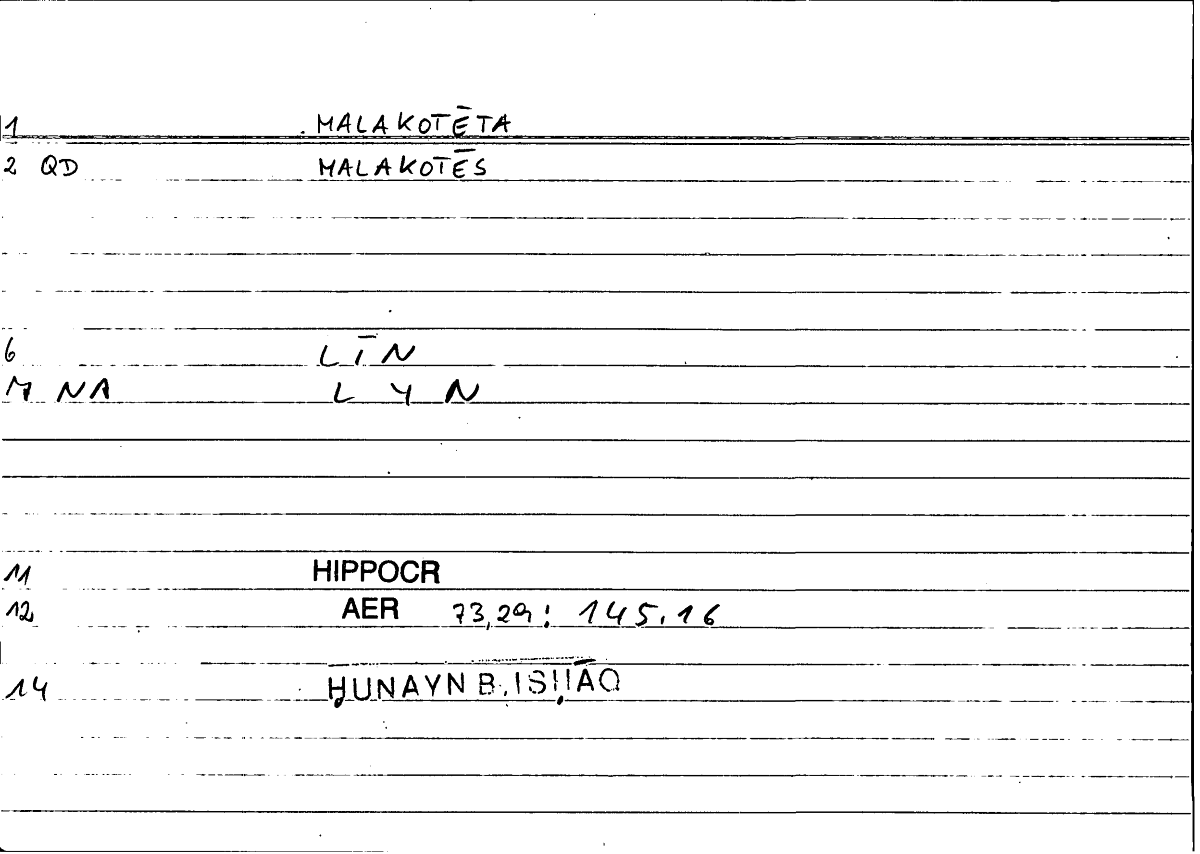 1 MALAKOTĒTA
2 QD MALAKOTĒS
6 LĪN
7 NA L Y N
11 HIPPOCR
12 AER 73,29: 145.16
14 ḤUNAYN B. ISḤĀQ